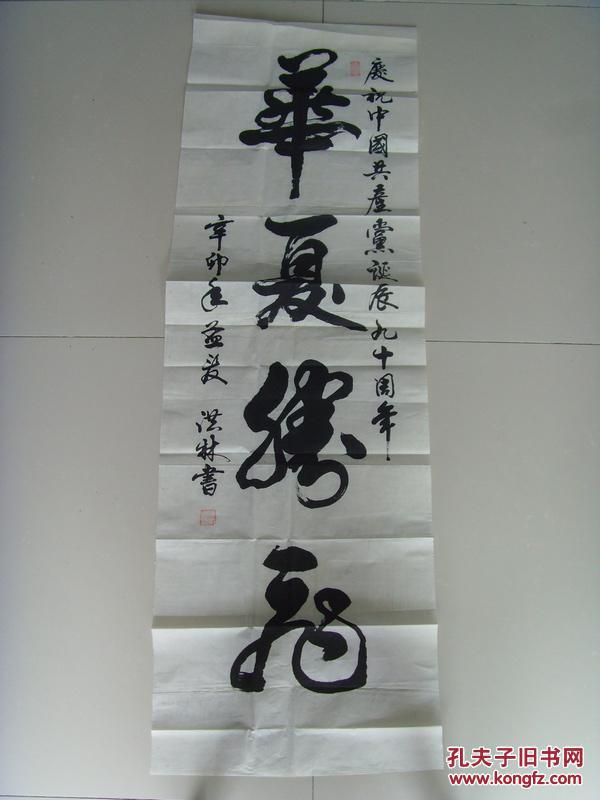 慶祝中國共產黨誕辰九十周年
華夏騰飛
辛卯年益夏 洪林書
孔夫子旧书网
www.kongfz.com